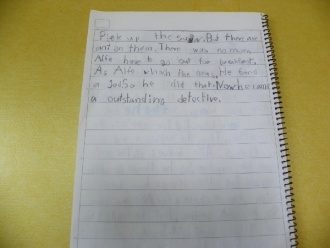 Pick up the sugar. But there are
ant on them. There was no more
Alfs have to go out for breakfast.
As Alfs walk in the area, He found
a job So he did that. Now he
a outstanding detective.